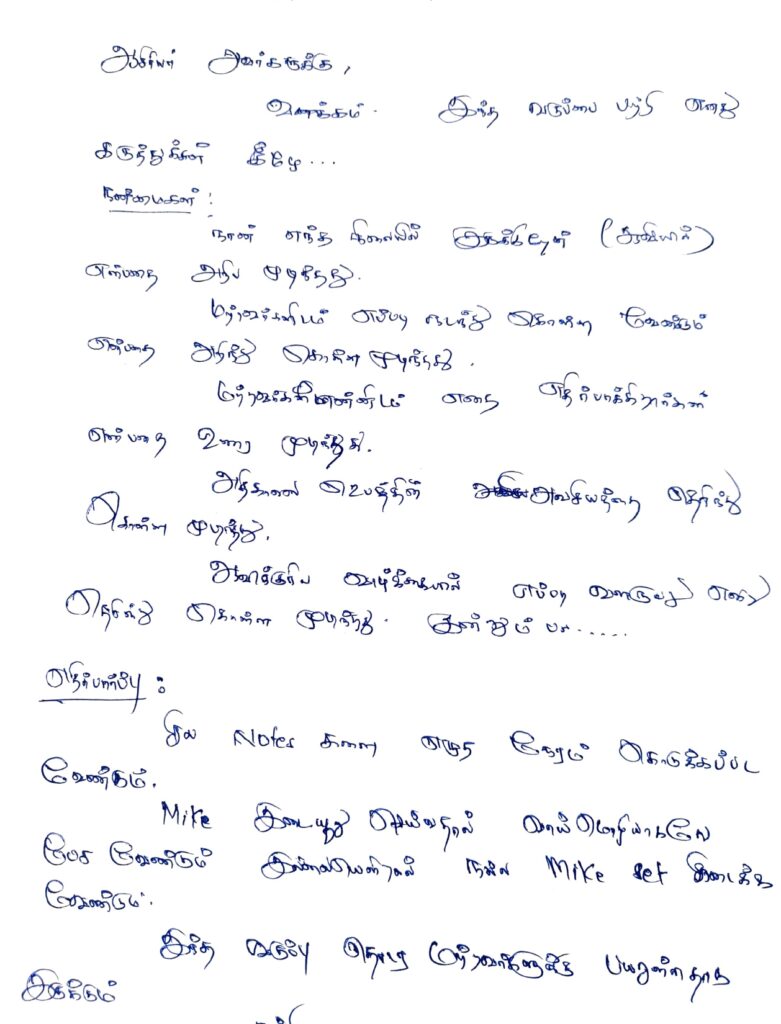 ஆசிரியர் அவர்களுக்கு,
வணக்கம். இந்த வகுப்பை பற்றி எனது
கருத்துக்கள் கீழே...
நன்மைகள் :
நான் எந்த நிலையில் இருக்கிறேன்
என்பதை அறிய முடிந்தது.
மற்றவர்களிடம் எப்படி நடந்து கொள்ள வேண்டும்
என்பதை அறிந்து கொள்ள முடிந்தது.
மற்றவர்கள் என்னிடம் எதை எதிர்பார்க்கிறார்கள்
என்பதை உணர முடிந்தது.
அதிகாலை ஜெபத்தின் அவசியத்தை தெரிந்து
கொள்ள முடிந்தது.
ஆவிக்குரிய வாழ்க்கையில் எப்படி வளருவது என்று
தெரிந்து கொள்ள முடிந்தது. இன்னும் பல.....
எதிர்பார்ப்பு :
சில Notes களை எழுத நேரம் கொடுக்கப்பட
வேண்டும்.
Mike இடையூறு செய்வதால் வாய்மொழியாகவே
பேச வேண்டும் இல்லையெனில் நல்ல Mike set கிடைக்க
வேண்டும்.
இந்த வகுப்பு தொடர மற்றவர்களுக்கு பயனுள்ளதாக
இருக்கும்